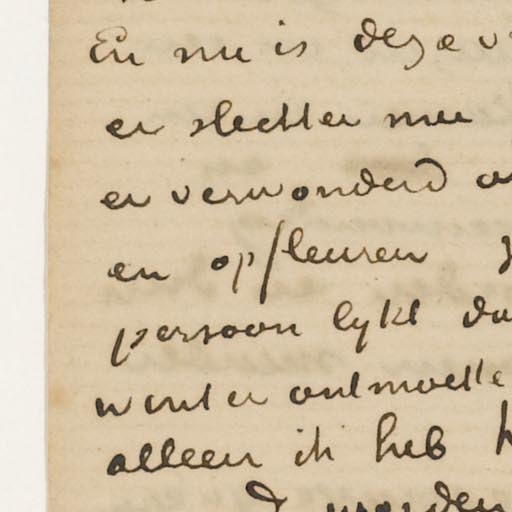 En nu is deze v
er slechter mee
er verwonderd o
en opfleuren
persoon lykt da
winter ontmoette
alleen ik heb h
worden